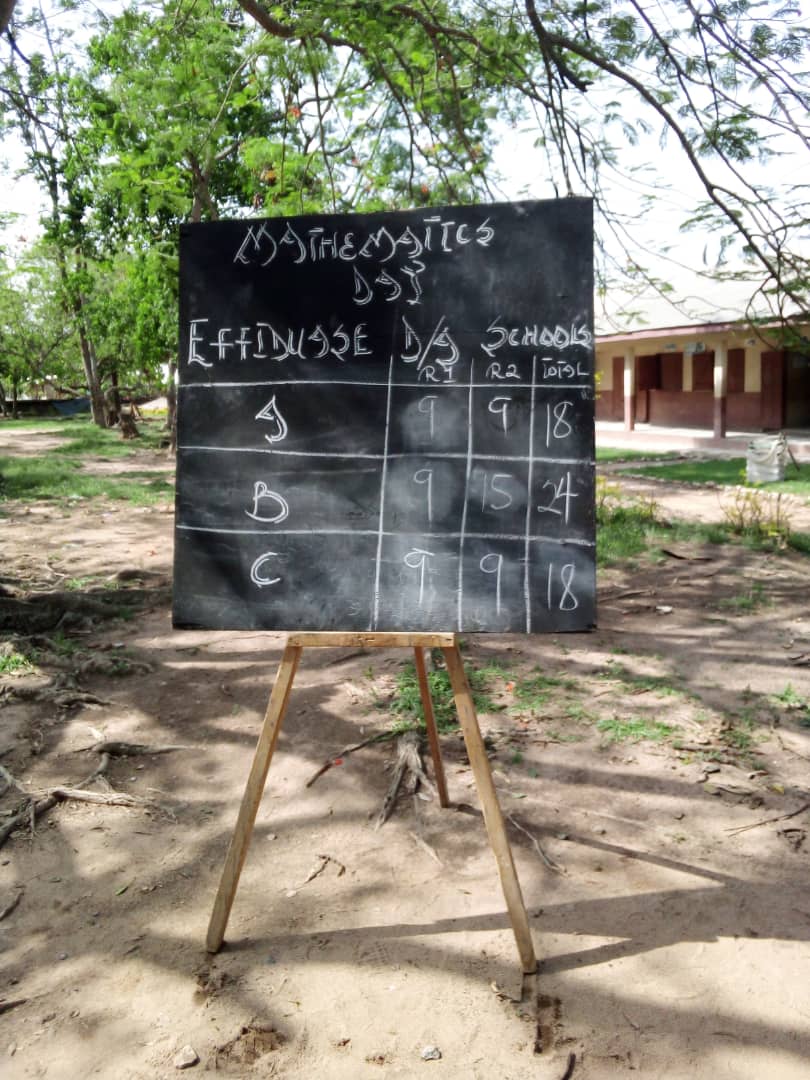 MATHEMATICS
DAY
EFFIDUASE D/A SCHOOLS
R1 R2 TOTAL
A 9 9 18
B 9 15 24
C 9 9 18